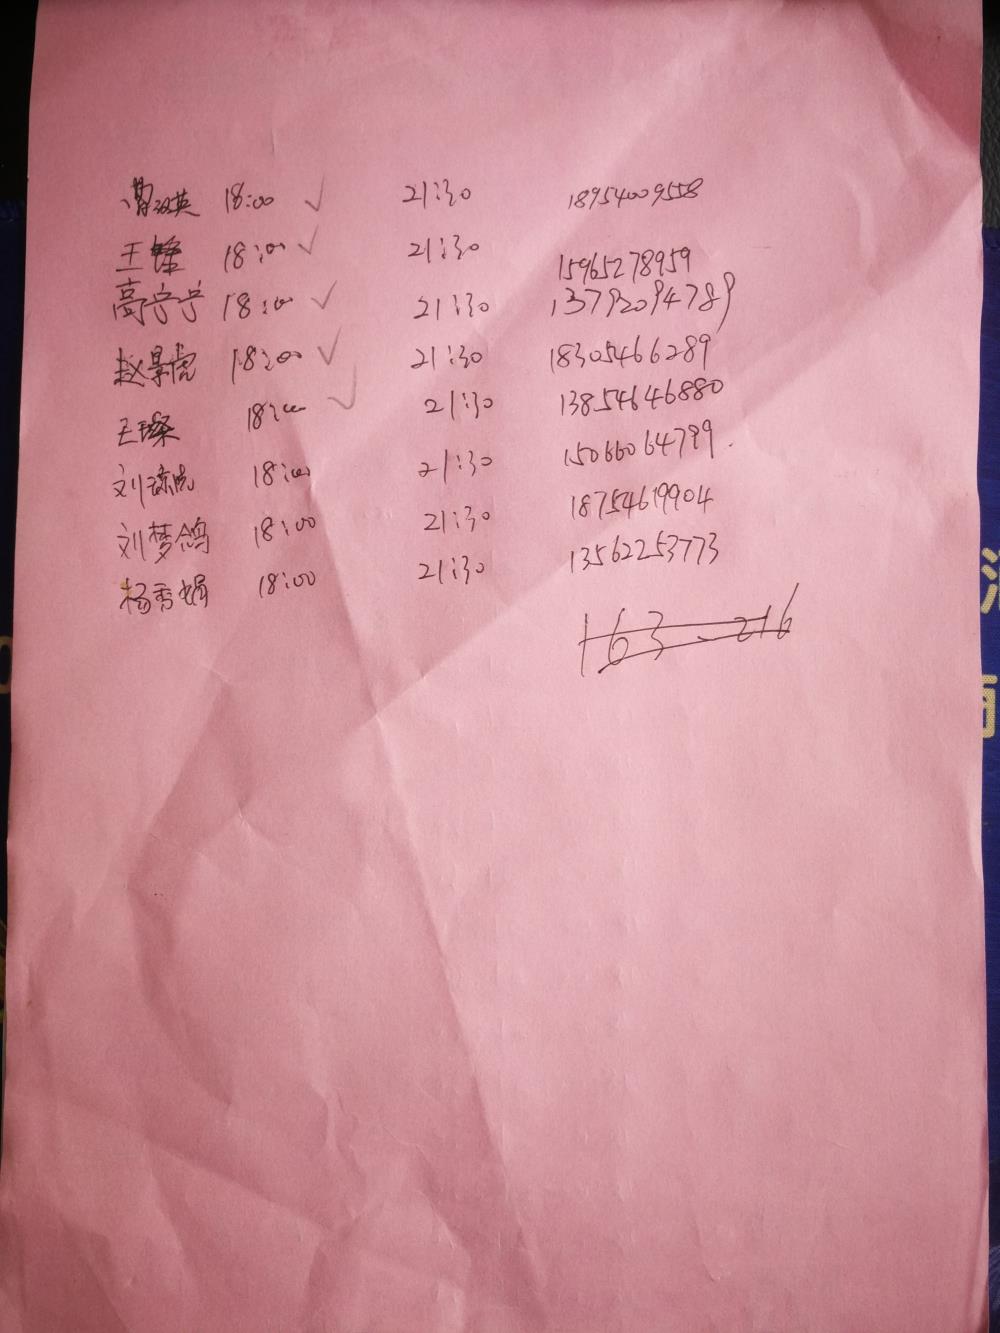 曹汝英 18:00 ✓ 21:30 18954009558
王锋 18:00 ✓ 21:30 15965278959
高宁宁 18:00 ✓ 21:30 13792094789
赵景虎 18:00 ✓ 21:30 18305466289
王璨 18:00 ✓ 21:30 13854646880
刘 18:00 21:30 15066064799
刘梦鸽 18:00 21:30 18754619904
杨秀娟 18:00 21:30 13562253773
163 216